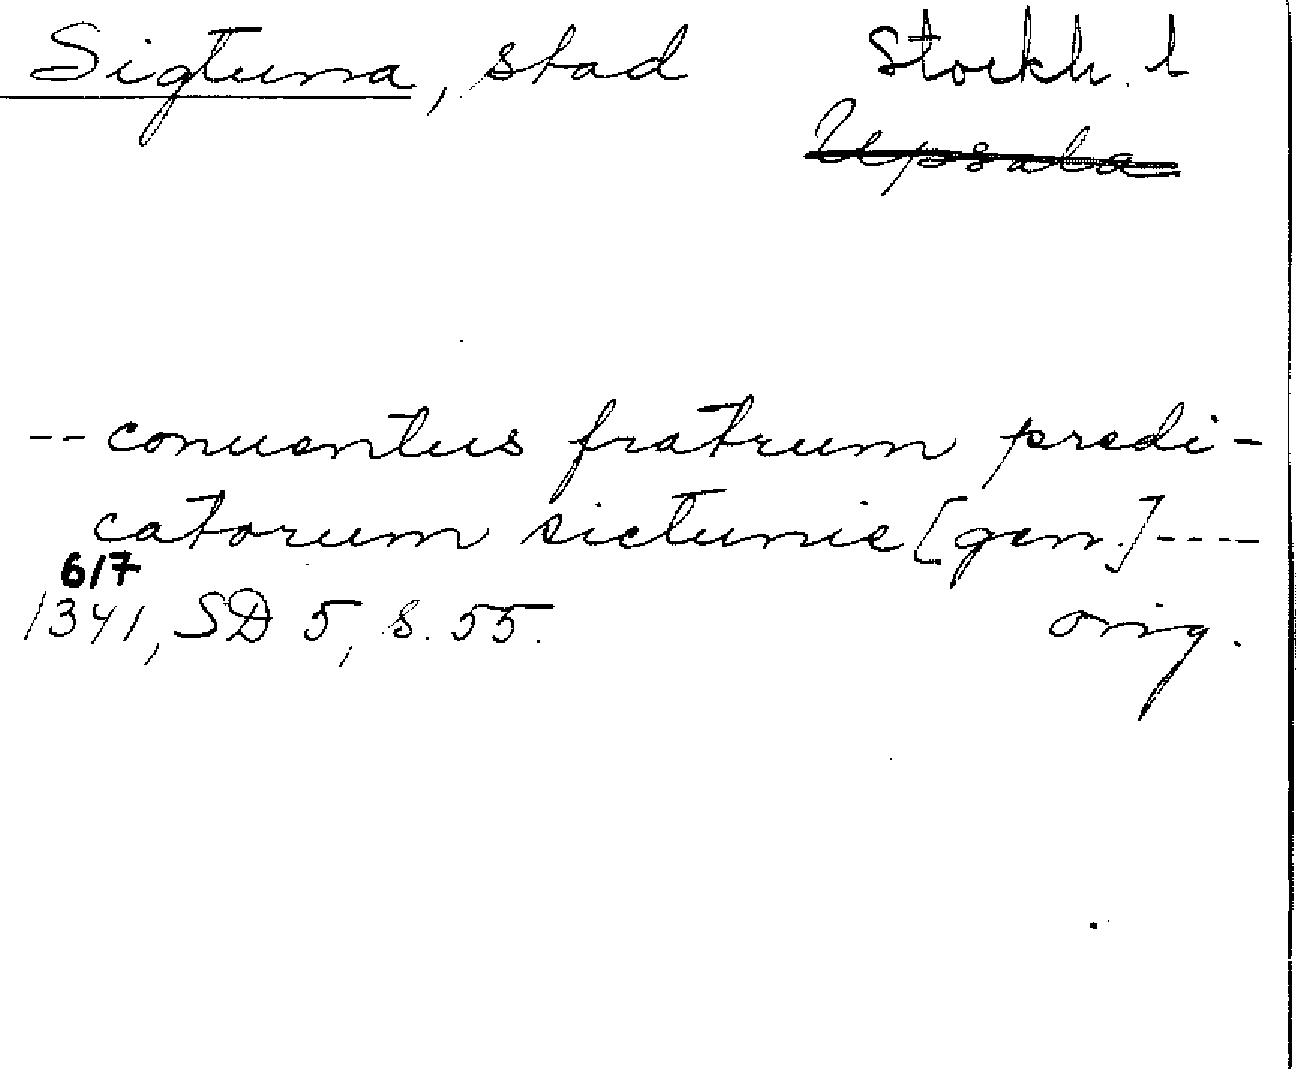 Sigtuna, stad Stockh. l
Upsala
-- conuentus fratrum predi-
catorum sictunie [gen.] ----
6/7
1341, SD 5, s. 55. orig.